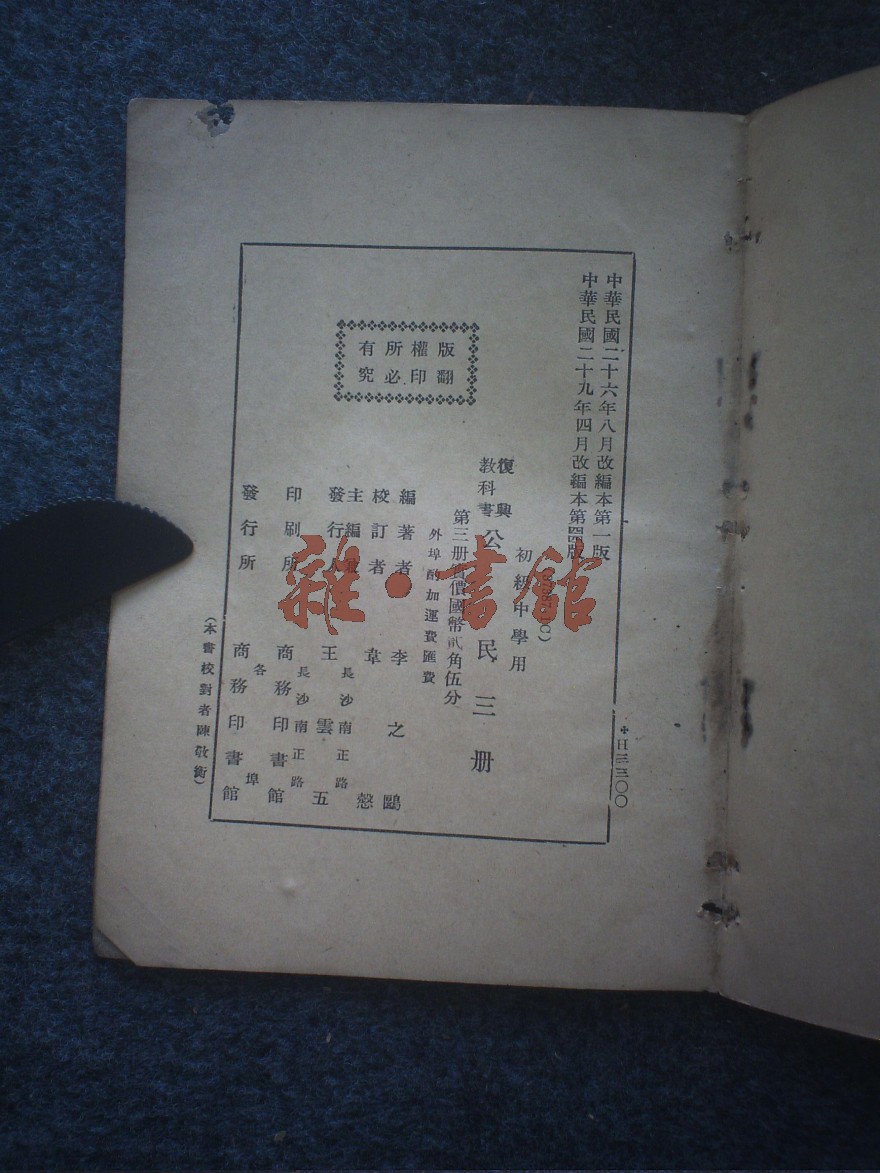 中華民國二十六年八月改編本第一版
中華民國二十九年四月改編本第四版
✢H三三〇〇
初級中學用
復興
教科書
公民三冊
第三冊實價國幣貳角伍分
外埠酌加運費匯費
版權所有
翻印必究
編著者 李之鷗
校訂者 韋愨
主編兼
發行人 王雲五
長沙南正路
印刷所 商務印書館
長沙南正路
發行所 商務印書館
各埠
(本書校對者陳敬衡)
雜·書館